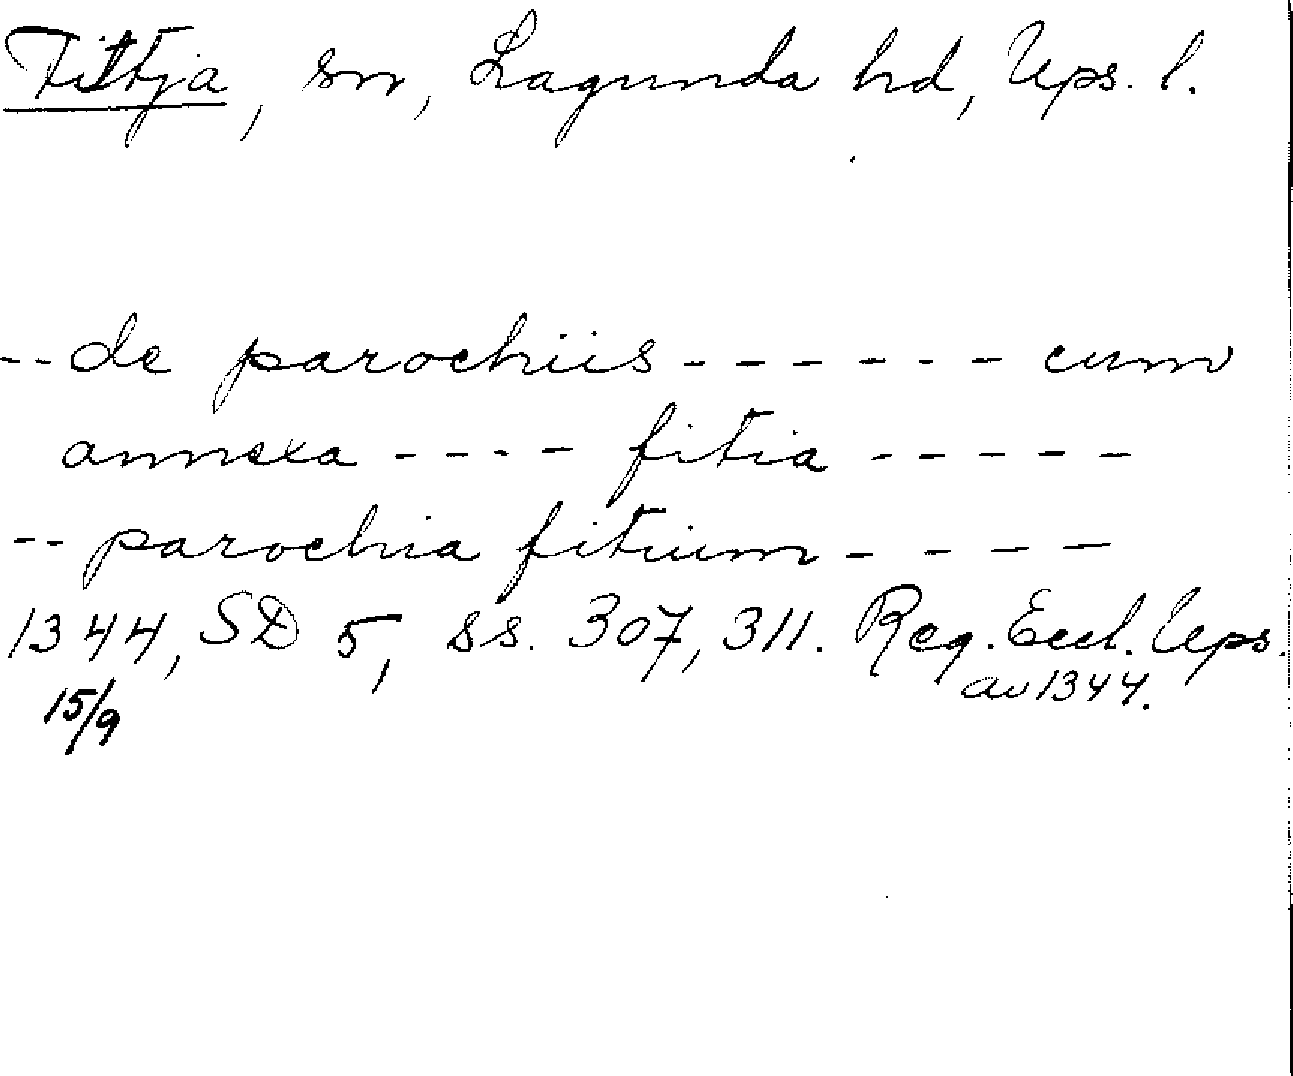 Fittja, sn, Lagunda hd, Ups. l.
-- de parochiis ------ cum
annexa ---- fitia -----
-- parochia fitium ----
1344, SD 5, ss. 307, 311. Reg. Eccl. Ups.
av 1344.
15/9